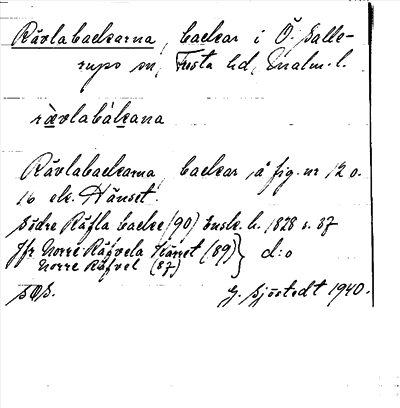 Rävlabackarna, backar i Ö. Salle-
rups sn, Frosta hd, Malm. l.
rävlabàkana
Rävlabackarna, backar å fig. nr 12 o.
16 ek. Hänset.
Södre Räfla backe (90) Ensk. h. 1828 s. 37
Jfr Norre Räfvela Känet (89) } d:o
Norre Räfvel (87)
SOS. G. Sjöstedt 1940.